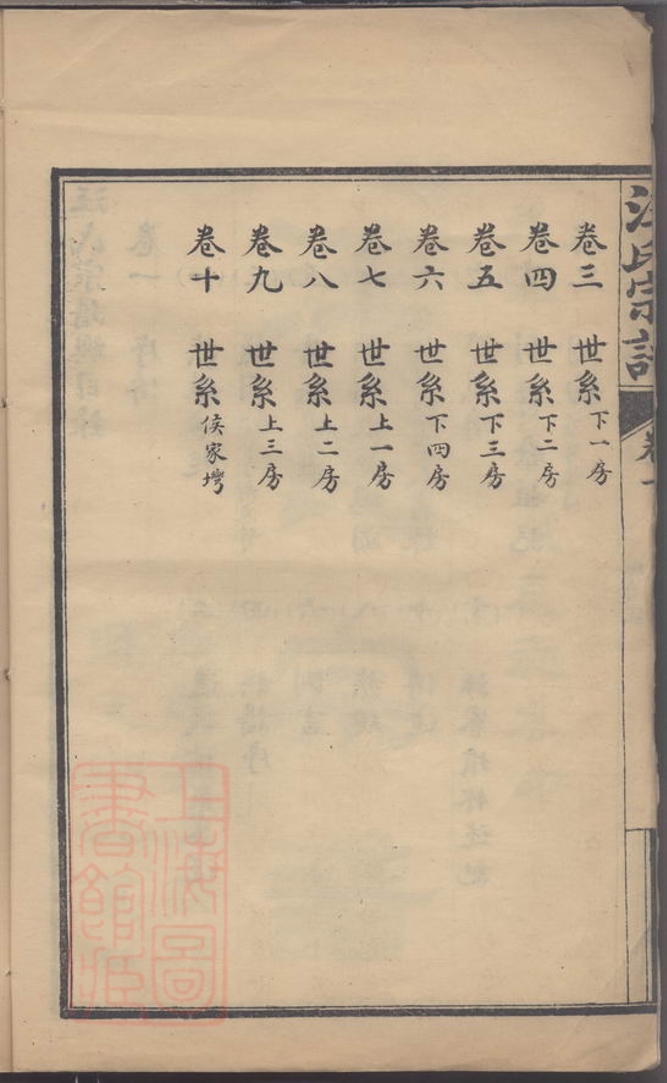 汪氏宗譜
卷一
卷三 世系下一房
卷四 世系下二房
卷五 世系下三房
卷六 世系下四房
卷七 世系上一房
卷八 世系上二房
卷九 世系上三房
卷十 世系侯家塆
上海圖
書館藏